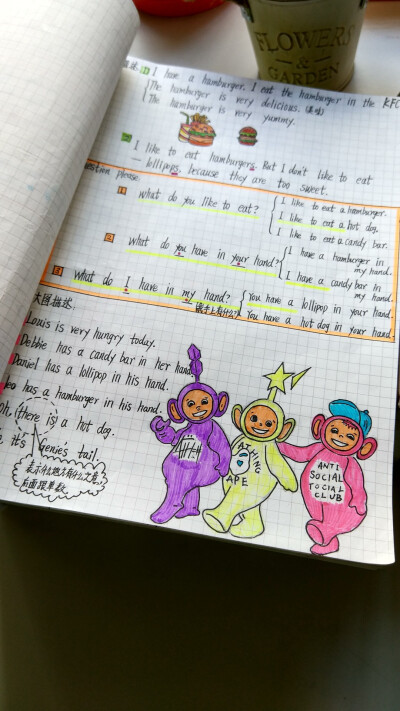 FLOWERS
&
GARDEN
I have a hamburger. I eat the hamburger in the KFC
The hamburger is very delicious. (美味)
The hamburger is very yummy.
I like to eat hamburgers. But I don't like to eat
lollipops, because they are too sweet.
please
1 what do you like to eat?
I like to eat a hamburger.
I like to eat a hot dog.
I like to eat a candy bar.
2 what do you have in your hand?
I have a hamburger in my hand.
I have a candy bar in my hand.
3 what do I have in my hand?
手上有什么?
You have a lollipop in your hand.
You have a hot dog in your hand
大图描述:
Louis is very hungry today.
Debbie has a candy bar in her hand.
Daniel has a lollipop in his hand.
has a hamburger in his hand.
Oh, there is a hot dog.
it's Genie's tail.
表示什么地方有什么
后面跟单数
A THING
APE
ANTI
SOCIAL
TOCIAL
CLUB